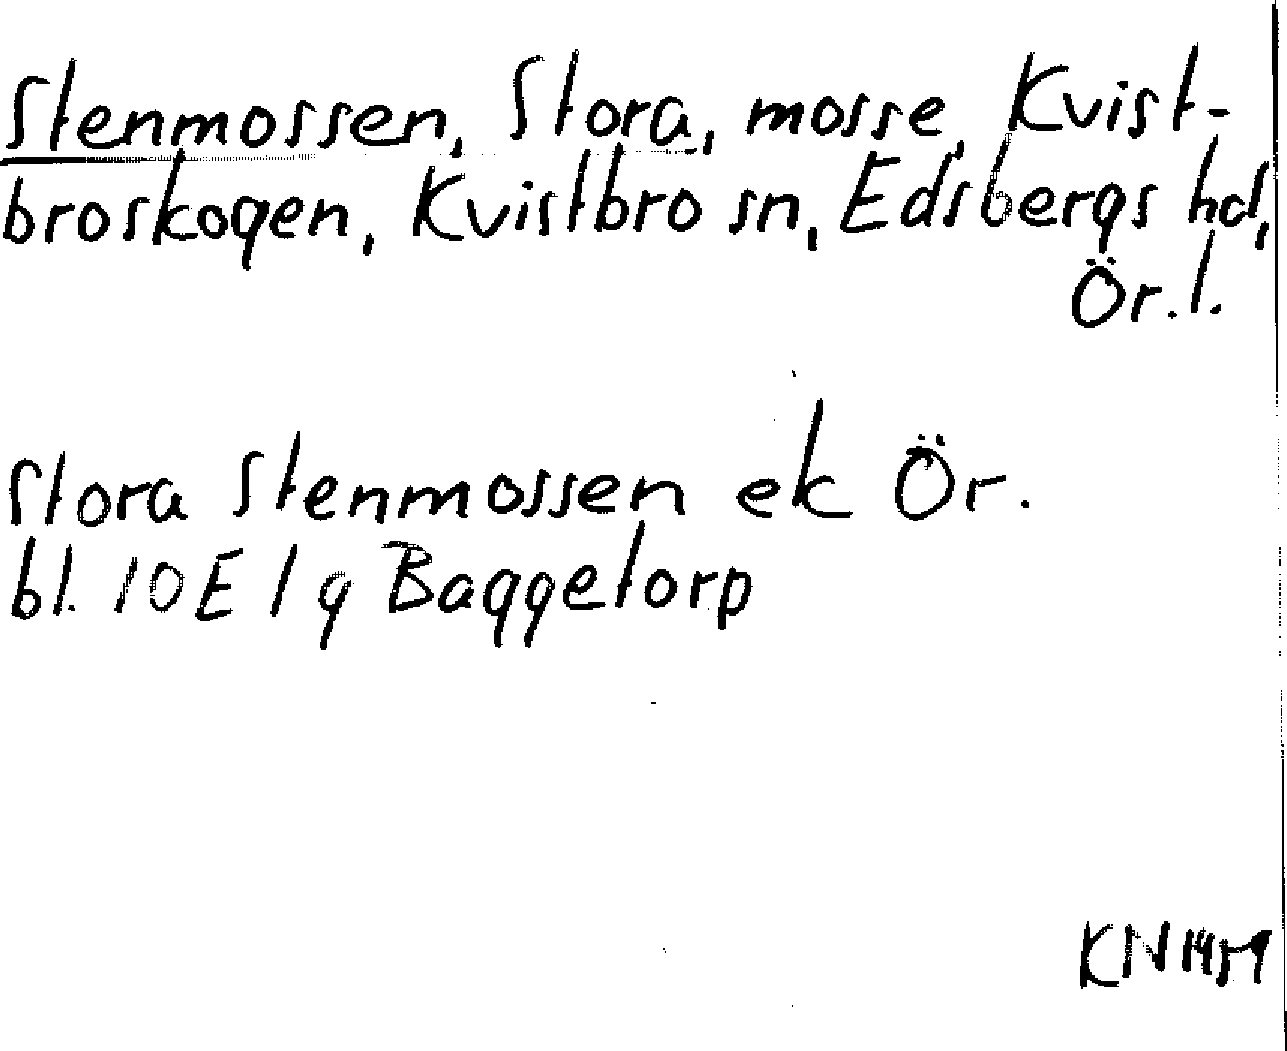 Stenmossen, Stora, mosse, Kvist-
broskogen, Kvistbro sn, Edsbergs hd,
Ör. l.
Stora Stenmossen ek Ör.
bl. 10E 1g Baggetorp
KN 1459